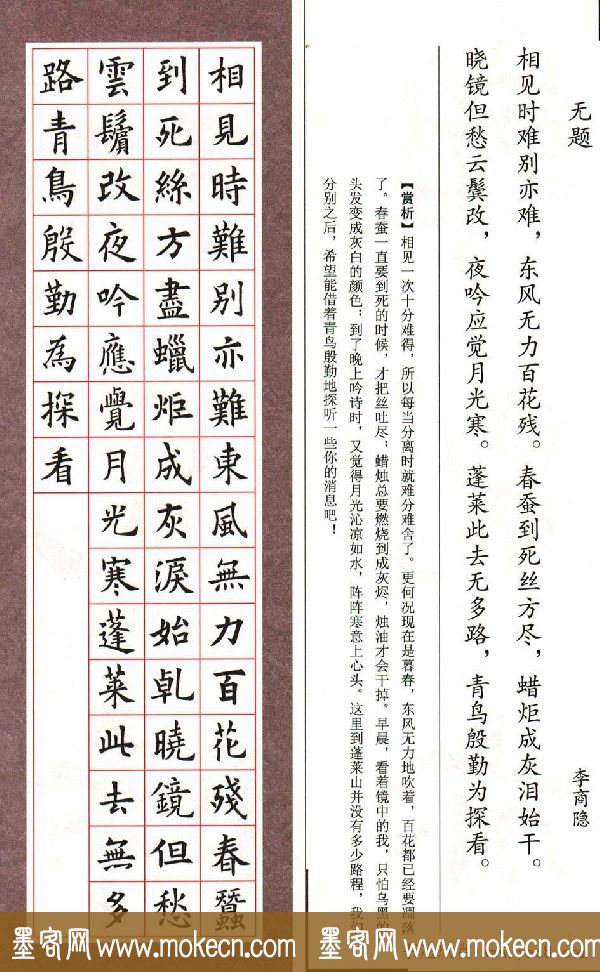 无题
李商隐
相见时难别亦难，东风无力百花残。春蚕到死丝方尽，蜡炬成灰泪始干。
晓镜但愁云鬓改，夜吟应觉月光寒。蓬莱此去无多路，青鸟殷勤为探看。
【赏析】相见一次十分难得，所以每当分离时就难分难舍了。更何况现在是暮春，东风无力地吹着，百花都已经要凋落
了。春蚕一直要到死的时候，才把丝吐尽；蜡烛总要燃烧到成灰烬，烛油才会干掉。早晨，看着镜中的我，只怕乌黑的
头发变成灰白的颜色；到了晚上吟诗时，又觉得月光沁凉如水，阵阵寒意上心头。这里到蓬莱山并没有多少路程，我们
分别之后，希望能借着青鸟殷勤地探听一些你的消息吧！
相見時難別亦難東風無力百花殘春蠶
到死絲方盡蠟炬成灰淚始乹曉鏡但愁
雲鬢改夜吟應覺月光寒蓬萊此去無多
路青鳥殷勤為探看
墨客网 www.mokecn.com 墨客网 www.mokecn.com